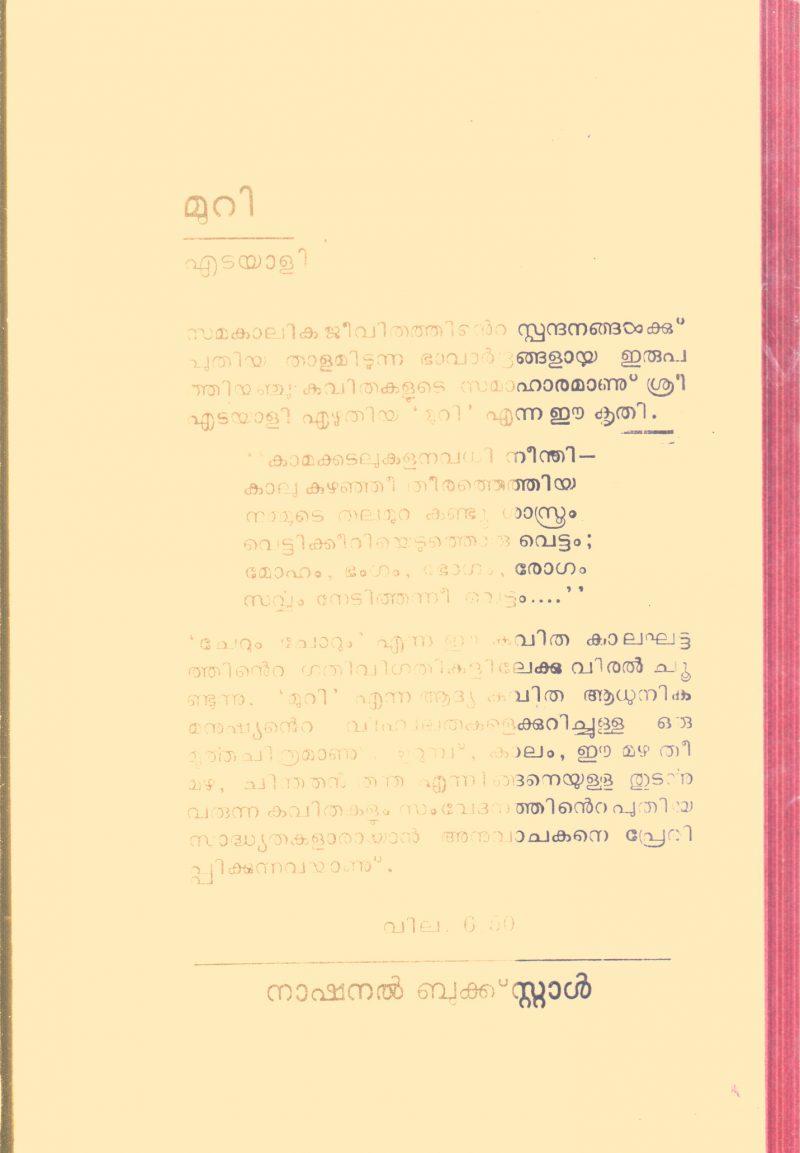 മുറി
എടയാളി
സമകാലിക ജീവിതത്തിന്റെ സ്പന്ദനങ്ങൾക്കു്
പുതിയ താളമിടുന്ന ഭാവാർദ്രങ്ങളായ ഇരുപ
ത്തിയഞ്ചു കവിതകളുടെ സമാഹാരമാണു് ശ്രീ
എടയാളി എഴുതിയ ‘മുറി’ എന്ന ഈ കൃതി.
‘‘കാമക്കടലുകളനവധി നീന്തി—
കാലു കുഴഞ്ഞീ തീരത്തെത്തിയ
നാമുടെ തലമുറ കണ്ടൂ ശാസ്ത്രം
വെട്ടിക്കീറിയെടുത്തൊരു വെട്ടം;
മോഹം, ഭംഗം, ഭോഗം, രോഗം
സർവ്വം നേടിത്തന്നീ വെട്ടം....’’
‘ചേറും ചോറും’ എന്ന ഈ കവിത കാലഘട്ട
ത്തിൻെറ ഗതിവിഗതികളിലേക്കു വിരൽ ചൂ
ണ്ടുന്നു. ‘മുറി’ എന്ന ആദ്യ കവിത ആധുനിക
മനുഷ്യൻെറ വിഹ്വലതകളെക്കുറിച്ചുള്ള ഒരു
കാലം, ഈ മഴ തീ
മഴ, ചിന്തതൻ എന്നിങ്ങനെയുള്ള തുടർന്നു
വരുന്ന കവിതകളും സംവേദനത്തിൻെറ പുതിയ
സാദ്ധ്യതകളാരായാൻ അനുവാചകനെ പ്രേരി
പ്പിക്കുന്നവയാണു്.
വില. 6.50
നാഷണൽ ബുക്ക് സ്റ്റാൾ